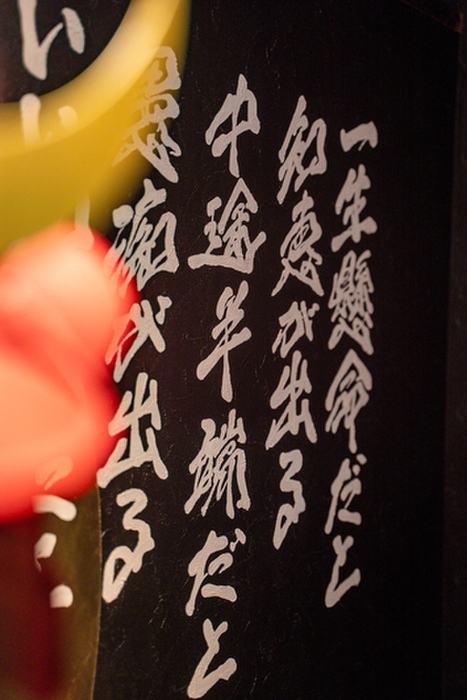 一生懸命だと
知恵が出る
中途半端だと
愚痴が出る
い